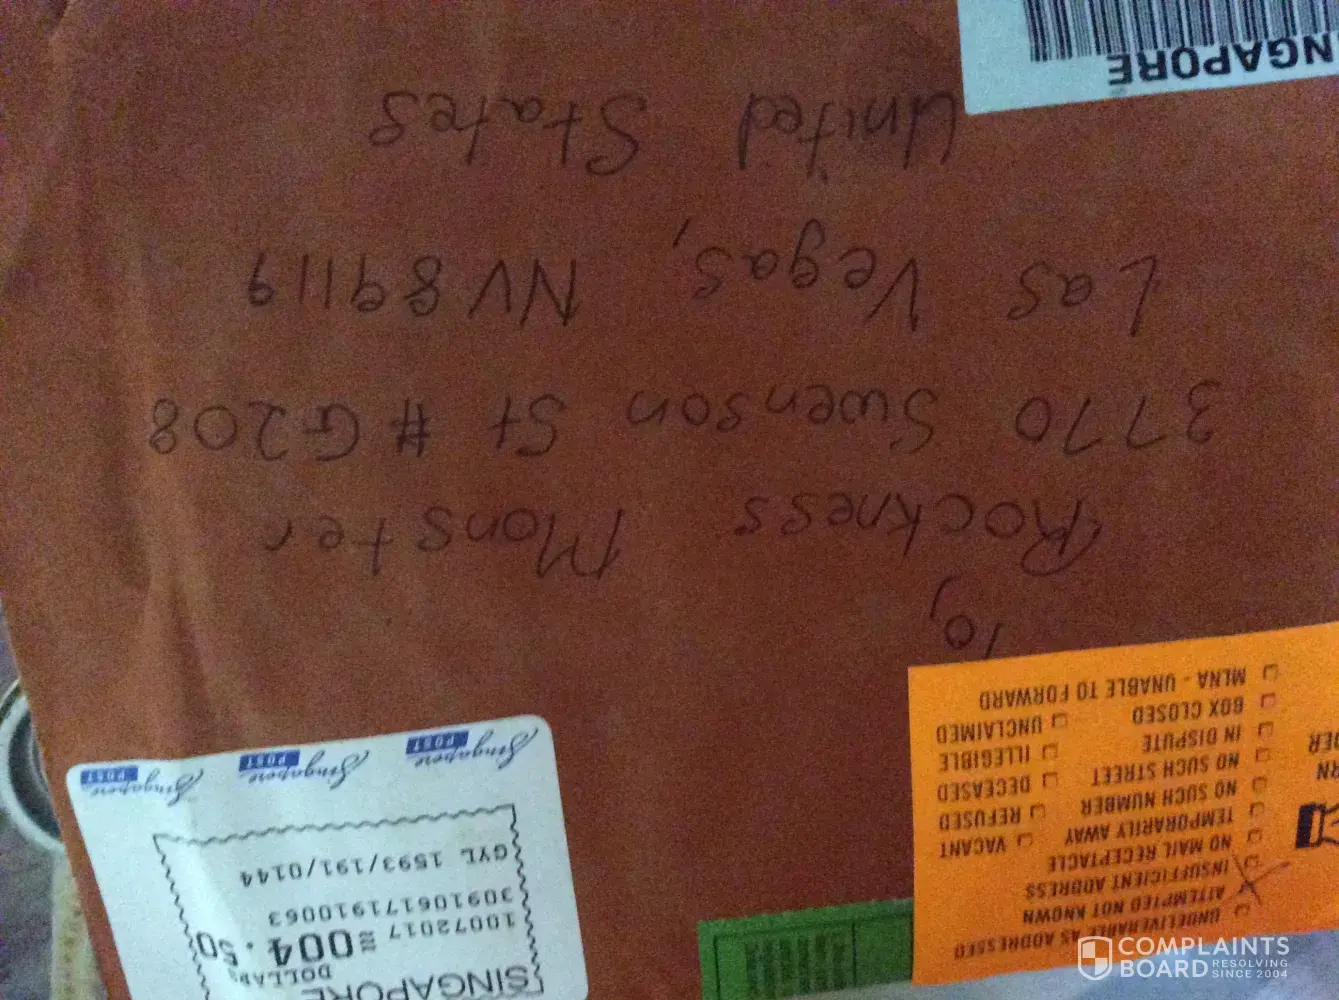 SINGAPORE
DOLLAR
≡004.50
10072017
30910617191 0063
GYL 1593/191/0144
Singapore POST Singapore POST Singapore POST
UNDELIVERABLE AS ADDRESSED
ATTEMPTED NOT KNOWN
INSUFFICIENT ADDRESS
NO MAIL RECEPTACLE
TEMPORARILY AWAY
NO SUCH NUMBER
NO SUCH STREET
IN DISPUTE
BOX CLOSED
MLNA - UNABLE TO FORWARD
VACANT
REFUSED
DECEASED
ILLEGIBLE
UNCLAIMED
To,
Rockness Monster
3770 Swenson St #G208
Las Vegas, NV 89119
United States
NGAPORE
COMPLAINTS
BOARD RESOLVING
SINCE 2004